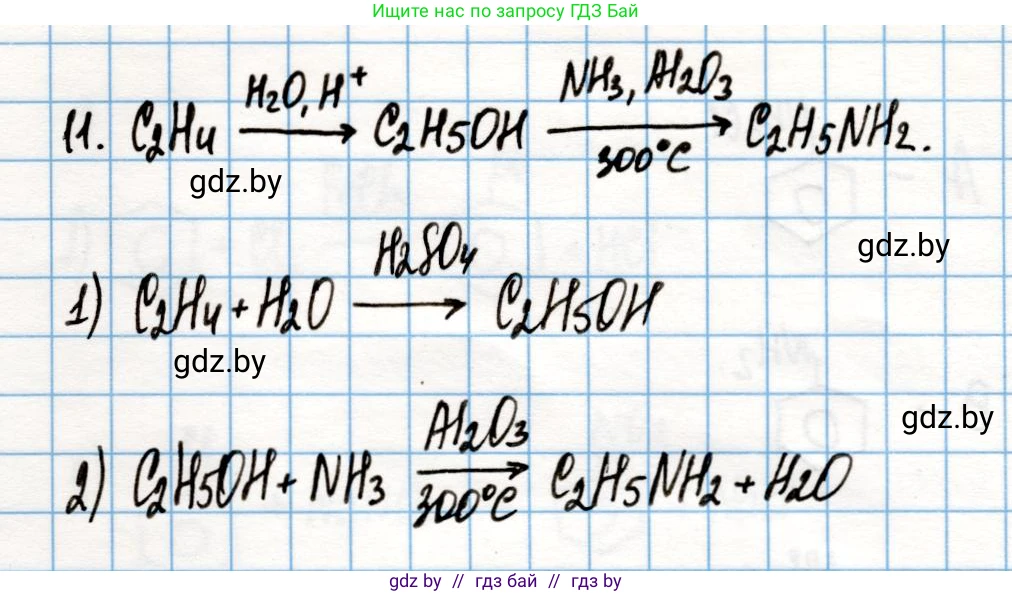 Ищите нас по запросу ГДЗ Бай
11. C₂H₄ —H₂O, H⁺→ C₂H₅OH —NH₃, Al₂O₃ 300°C→ C₂H₅NH₂.
gdz.by
gdz.by
1) C₂H₄ + H₂O —H₂SO₄→ C₂H₅OH
gdz.by
gdz.by
2) C₂H₅OH + NH₃ —Al₂O₃ 300°C→ C₂H₅NH₂ + H₂O
gdz by // гдз бай // гдз by